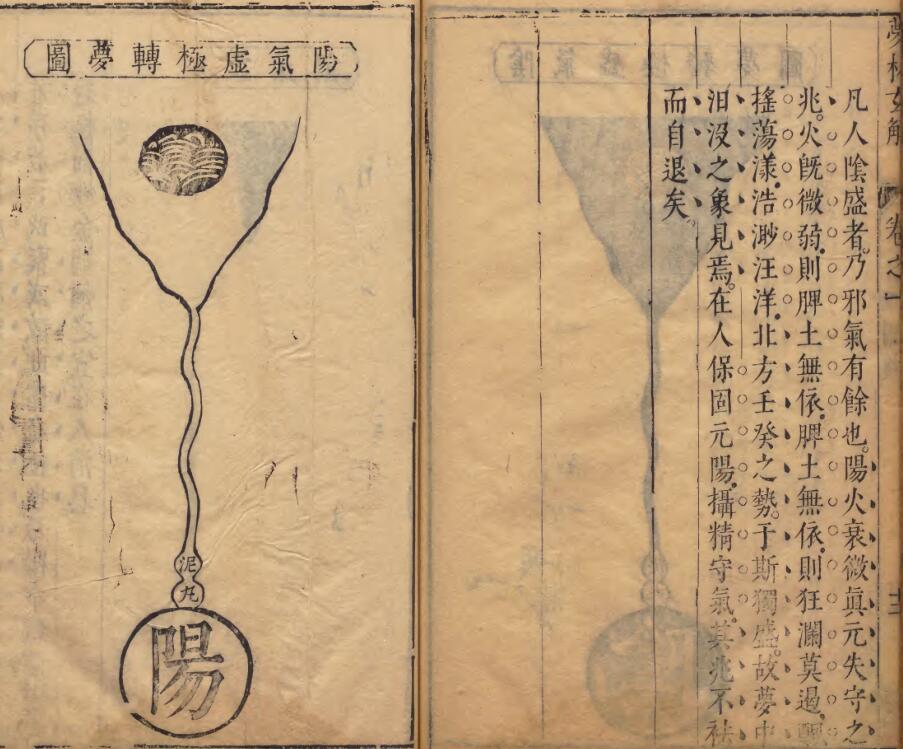 夢林玄解
卷之一
凡人陰盛者。乃邪氣有餘也。陽火衰微眞元失守之
兆。火旣微弱。則脾土無依。脾土無依。則狂瀾莫遏。
搖蕩漾。浩渺汪洋。北方壬癸之勢。于斯獨盛。故夢中
汨没之象見焉。在人保固元陽。攝精守氣。其兆不袪
而自退矣。
陽氣虛極轉夢圖
泥丸
陽